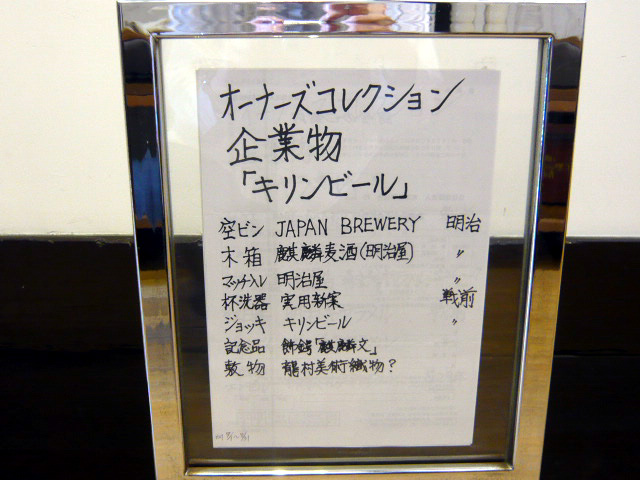 オーナーズコレクション
企業物
「キリンビール」
空ビン JAPAN BREWERY 明治
木箱 麒麟麦酒(明治屋) 〃
マッチ入レ 明治屋 〃
杯洗器 実用新案 戦前
ジョッキ キリンビール 〃
記念品 飾銭「麒麟文」
敷物 龍村美術織物?